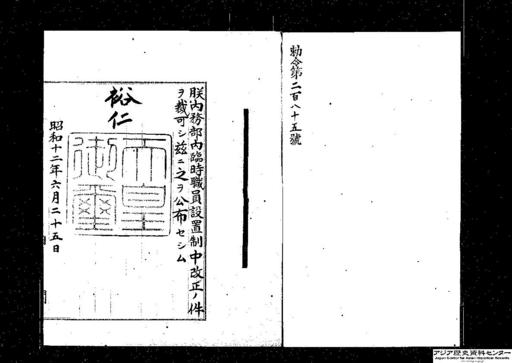 勅令第二百八十五號
朕内務部內臨時職員設置制中改正ノ件
ヲ裁可シ茲ニ之ヲ公布セシム
裕仁
天皇御璽
昭和十二年六月二十五日
アジア歴史資料センター
Japan Center for Asian Historical Records